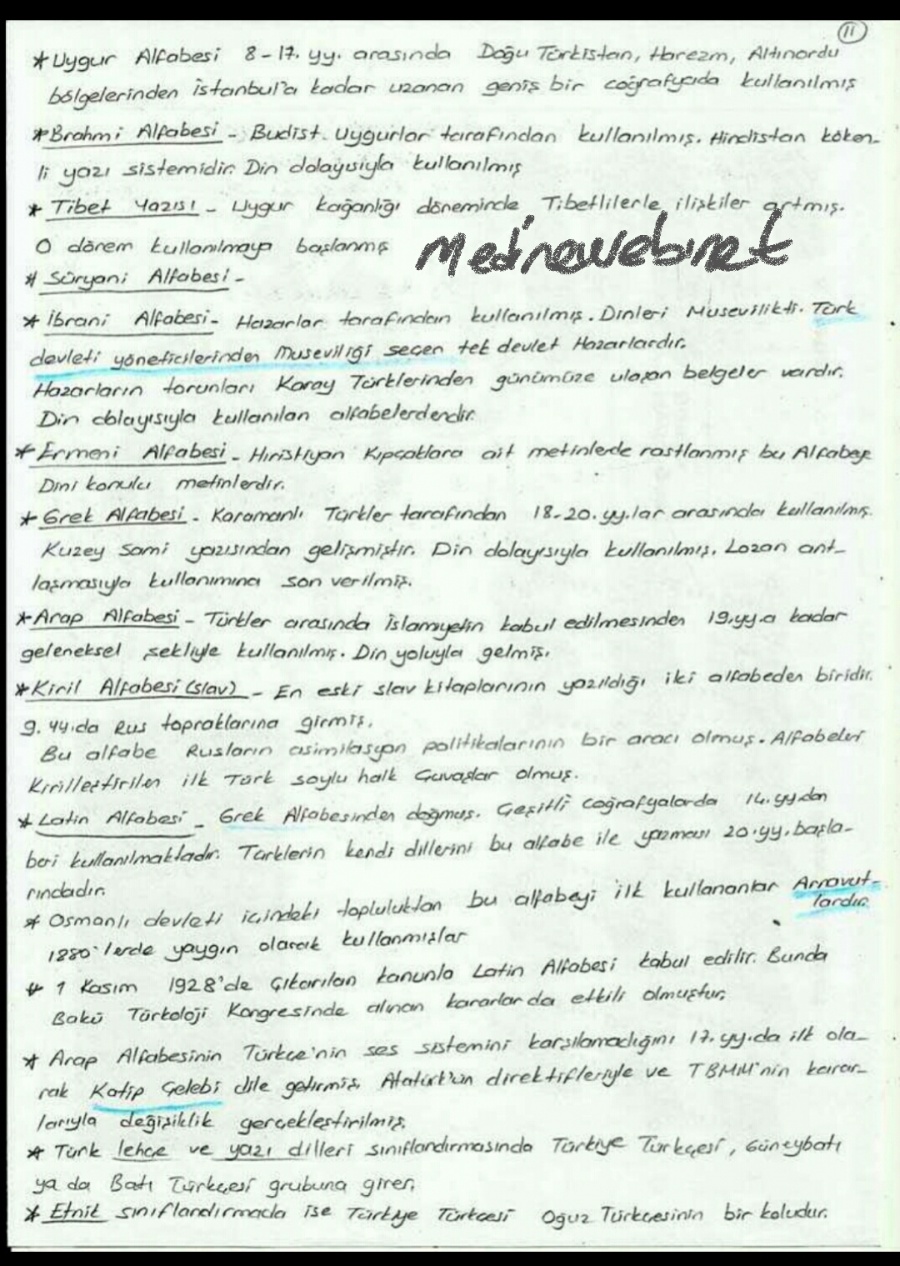 11
* Uygur Alfabesi 8-17. yy. arasında Doğu Türkistan, Harezm, Altınordu
bölgelerinden İstanbul'a kadar uzanan geniş bir coğrafyada kullanılmış
* Brahmi Alfabesi - Budist Uygurlar tarafından kullanılmış. Hindistan köken-
li yazı sistemidir. Din dolayısıyla kullanılmış
* Tibet Yazısı - Uygur kağanlığı döneminde Tibetlilerle ilişkiler artmış.
O dönem kullanılmaya başlanmış
Medinewebnet
* Süryani Alfabesi -
* İbrani Alfabesi - Hazarlar tarafından kullanılmış. Dinleri Musevilikti. Türk
devleti yöneticilerinden Museviliği seçen tek devlet Hazarlardır.
Hazarların torunları Karay Türklerinden günümüze ulaşan belgeler vardır.
Din dolayısıyla kullanılan alfabelerdendir.
* Ermeni Alfabesi - Hıristiyan Kıpçaklara ait metinlerde rastlanmış bu Alfabeye
Dini konulu metinlerdir.
* Grek Alfabesi - Karamanlı Türkler tarafından 18-20. yy.lar arasında kullanılmış.
Kuzey Sami yazısından gelişmiştir. Din dolayısıyla kullanılmış. Lozan ant-
laşmasıyla kullanımına son verilmiş.
* Arap Alfabesi - Türkler arasında İslamiyetin kabul edilmesinden 19.yy.a kadar
geleneksel şekliyle kullanılmış. Din yoluyla gelmiş.
* Kiril Alfabesi (slav) - En eski slav kitaplarının yazıldığı iki alfabeden biridir.
9. yy.da Rus topraklarına girmiş.
Bu alfabe Rusların asimilasyon politikalarının bir aracı olmuş. Alfabeleri
Kirilleştirilen ilk Türk soylu halk Çuvaşlar olmuş.
* Latin Alfabesi - Grek Alfabesinden doğmuş. Çeşitli coğrafyalarda 14. yy.dan
beri kullanılmaktadır. Türklerin kendi dillerini bu alfabe ile yazması 20.yy. başla-
rındadır.
* Osmanlı devleti içindeki topluluktan bu alfabeyi ilk kullananlar Arnavut-
lardır.
1880'lerde yaygın olarak kullanmışlar
* 1 Kasım 1928'de çıkarılan kanunla Latin Alfabesi kabul edilir. Bunda
Bakü Türkoloji Kongresinde alınan kararlar da etkili olmuştur.
* Arap Alfabesinin Türkçe'nin ses sistemini karşılamadığını 17. yy.da ilk ola-
rak Katip Çelebi dile getirmiş. Atatürk'ün direktifleriyle ve TBMM'nin karar-
larıyla değişiklik gerçekleştirilmiş.
* Türk lehçe ve yazı dilleri sınıflandırmasında Türkiye Türkçesi, Güneybatı
ya da Batı Türkçesi grubuna girer.
* Etnik sınıflandırmada ise Türkiye Türkçesi Oğuz Türkçesinin bir koludur.